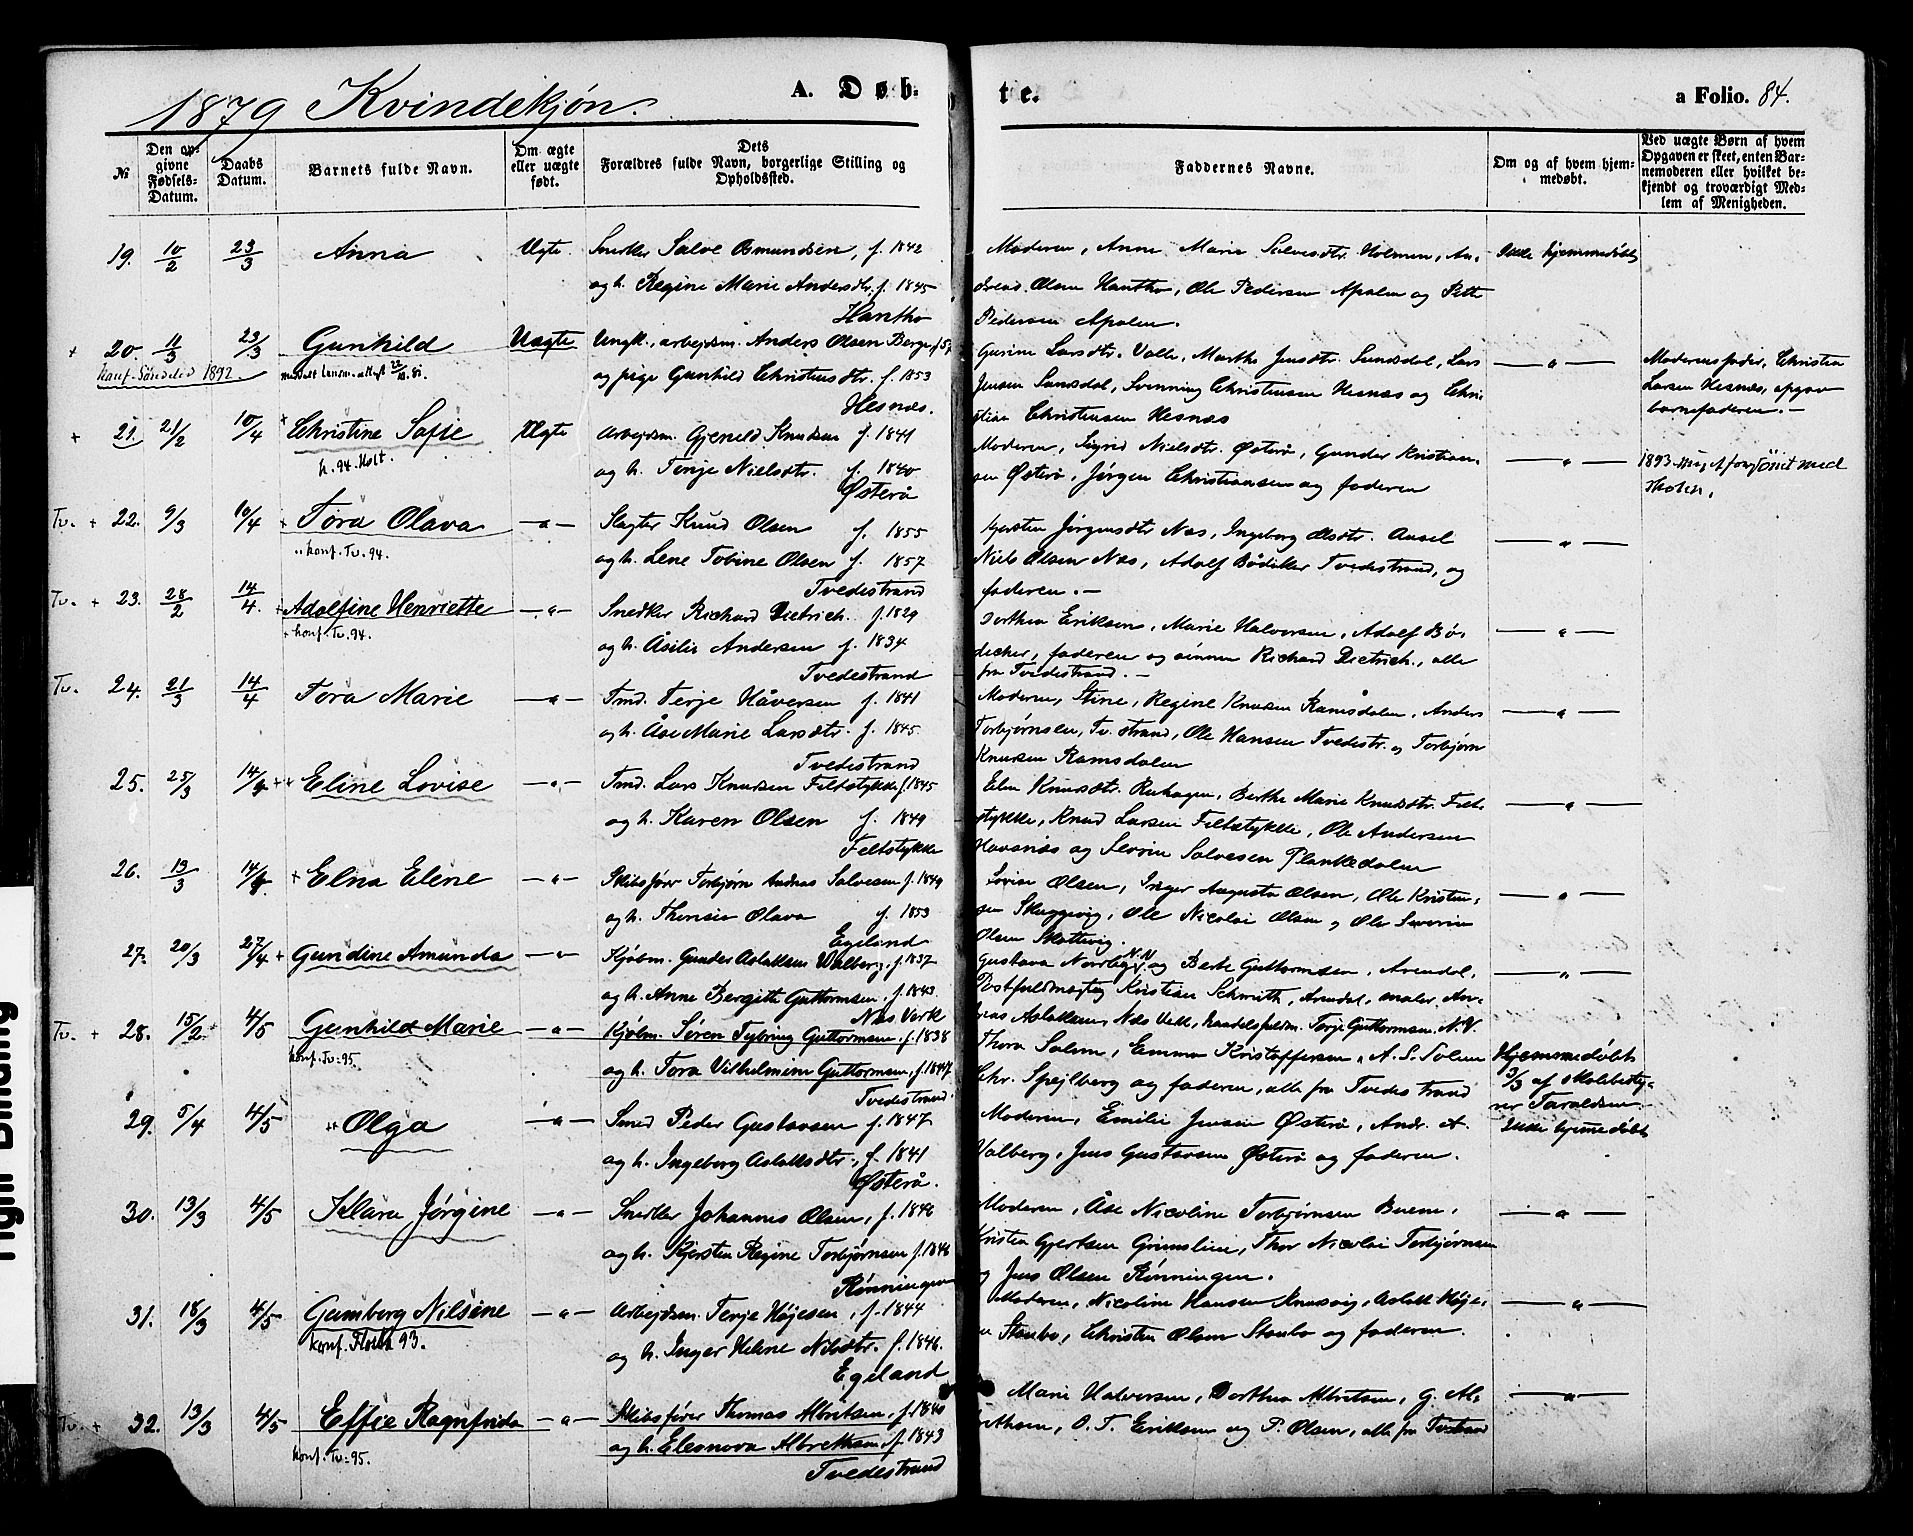 1879 Kvindekjøn.
A. Døb-
te.
a Folio. 84.
№
Den op-
givne
Fødsels-
Datum.
Daabs
Datum.
Barnets fulde Navn.
Om ægte
eller uægte
født.
Dets
Forældres fulde Navn, borgerlige Stilling og
Opholdssted.
Faddernes Navne.
Om og af hvem hjem-
medøbt.
Ved uægte Børn af hvem
Opgaven er skeet, enten Bar-
nemoderen eller hvilket be-
kjendt og troværdigt Med-
lem af Menigheden.
19. 10/2 23/3 Anna Ægte. Snedker Salve Osmundsen, f. 1842
og h. Regine Marie Andersdtr. f. 1845
Hantho
Moderen, Anne Marie Salvesdtr. Holmen, An-
dreas Olsen Hantho, Ole Pedersen Apalen og
Pedersen Apalen.
Ikke hjemmedøbt
+ 20. 11/3 23/3 Gunhild Uægte Ungk., arbejdsm. Anders Olsen Berge, f. 57
konf. Søndeled 1892.
og pige Gunhild Christensdtr. f. 1853
Hesnæs.
Gurine Larsdtr. Valle, Marthe Jensdtr. Sunsdal, Lars
Jensen Sunsdal, Svenning Christensen Hesnæs og Chri-
stian Christensen Hesnæs
— " —
Moderens fader, Christen
Larsen Hesnæs, opgav
barnefaderen. —
+ 21. 21/2 10/4 + Christine Sofie Ægte Arbejdsm. Gjeruld Knudsen f. 1841
k. 94. Holt.
og h. Terje Nielsdtr. f. 1840
Østerå
Moderen, Sigrid Nielsdtr. Østerå, Gunder Kristian-
sen Østerå, Jørgen Christiansen og faderen
— " —
1893
Tv. + 22. 9/3 10/4 + Tora Olava — " — Slagter Knud Olsen f. 1855
konf. Tv. 94.
og h. Lene Tobine Olsen f. 1857
Tvedestrand
Kjersten Jørgensdtr. Næs, Ingeborg Olsdtr.
Niels Olsen Næs, Adolf Bødiker Tvedestrand, og
faderen. —
— " —
Tv. + 23. 28/2 14/4. + Adolfine Henriette — " — Snedker Richard Dietrich. f. 1829
+ konf. Tv. 94.
og h. Åsilie Andersen f. 1834
Tvedestrand
Dorthea Eriksen, Marie Halversen, Adolf Bø-
dicher, faderen og sønnen Richard Dietrich., alle
fra Tvedestrand. —
— " —
Tv. 24. 21/3 14/4 Tora Marie — " — Tmd. Terje Håversen f. 1841
og h. Åse Marie Larsdtr. f. 1845.
Tvedestrand
Moderen, Stine, Regine Knusen Ramsdalen, Anders
Torbjørnsen, Tv. strand, Ole Hansen Tvedestr. og Torbjørn
Knusen Ramsdalen
— " —
25. 25/3 14/4 ++ Eline Lovise — " — Tmd. Lars Knudsen Feltstykke f. 1845
og h. Karen Olsen f. 1849
Feltstykke
Elen Knudsdtr. Ruhagen, Berthe Marie Knudsdtr. Felt-
stykke, Knud Larsen Feltstykke, Ole Andersen
Havsnæs og Severin Salvesen Plankedalen
— " —
26. 13/3 14/4. + Elna Elene — " — Skibsfører Torbjørn Andreas Salvesen f. 1849
og h. Theresie Olava f. 1853
Egeland
Lovise Olsen, Inger Augusta Olsen, Ole Kristen-
sen Skuggevig, Ole Nicolai Olsen og Ole Severin
Olsen Skottevig.
— " —
27. 20/3 27/4 + Gundine Amunda — " — Kjøbm. Gunder Aslaksen Walberg, f. 1837
og h. Anne Bergitte Guttormsen. f. 1843.
Næs Verk
Gustava og Berte Guttormsen, Arendal,
Postfuldmægtig Kristian Schmith, Arendal, maler An-
dreas Aslaksen, Næs Verk, handelsfuldm. Terje Guttormsen. N. V.
— " —
Tv. + 28. 15/2 4/5 Gunhild Marie — " — Kjøbm. Søren Tybring Guttormsen, f. 1838
konf. Tv. 95.
og h. Tora Vilhelmine Guttormsen, f. 1847.
Tvedestrand.
Thora Solem, Emma Kristoffersen, A. S. Solem
Chr. Spejlberg og faderen, alle fra Tvedestrand
Hjemmedøbt
3/3 af skolebesty-
rer Taraldsen.
29. 5/4 4/5 ++ Olga — " — Smed Peder Gustavsen f. 1847
og h. Ingeborg Aslaksdtr., f. 1841
Østerå.
Moderen, Emilie Jensen Østerå, Andr. A.
Valberg, Jens Gustavsen Østerå og faderen.
Ikke hjemmedøbt
30. 13/3 4/5 Klara Jørgine — " — Snedker Johannes Olsen, f. 1846
og h. Kjersten Regine Torbjørnsen f. 1846
Rønningen
Moderen, Åse Nicoline Torbjørnsen Buene,
Kristen Gjertsen Grimslien, Thor Nicolai Torbjørnsen
og Jens Olsen Rønningen.
— " —
31. 18/3 4/5 Gumborg Nilsine — " — Arbejdsm. Terje Højesen, f. 1844
konf. Holt 93.
og h. Inger Helene Nilsdtr. f. 1846.
Egeland
Moderen, Nicoline Hansen Knusvig, Aslak Høje-
sen Staubo, Christen Olsen Staubo og faderen.
— " —
Tv. + 32. 13/3 4/5 Effie Ragnfrida — " — Skibsfører Thomas Albretsen, f. 1840
konf. Tv. 95.
og h. Eleonora Albrethsen, f. 1843
Tvedestrand
Marie Halversen, Dorthea Albretsen, G. Al-
brethsen, O. T. Eriksen og P. Olsen, alle fra Tvestrand
— " —